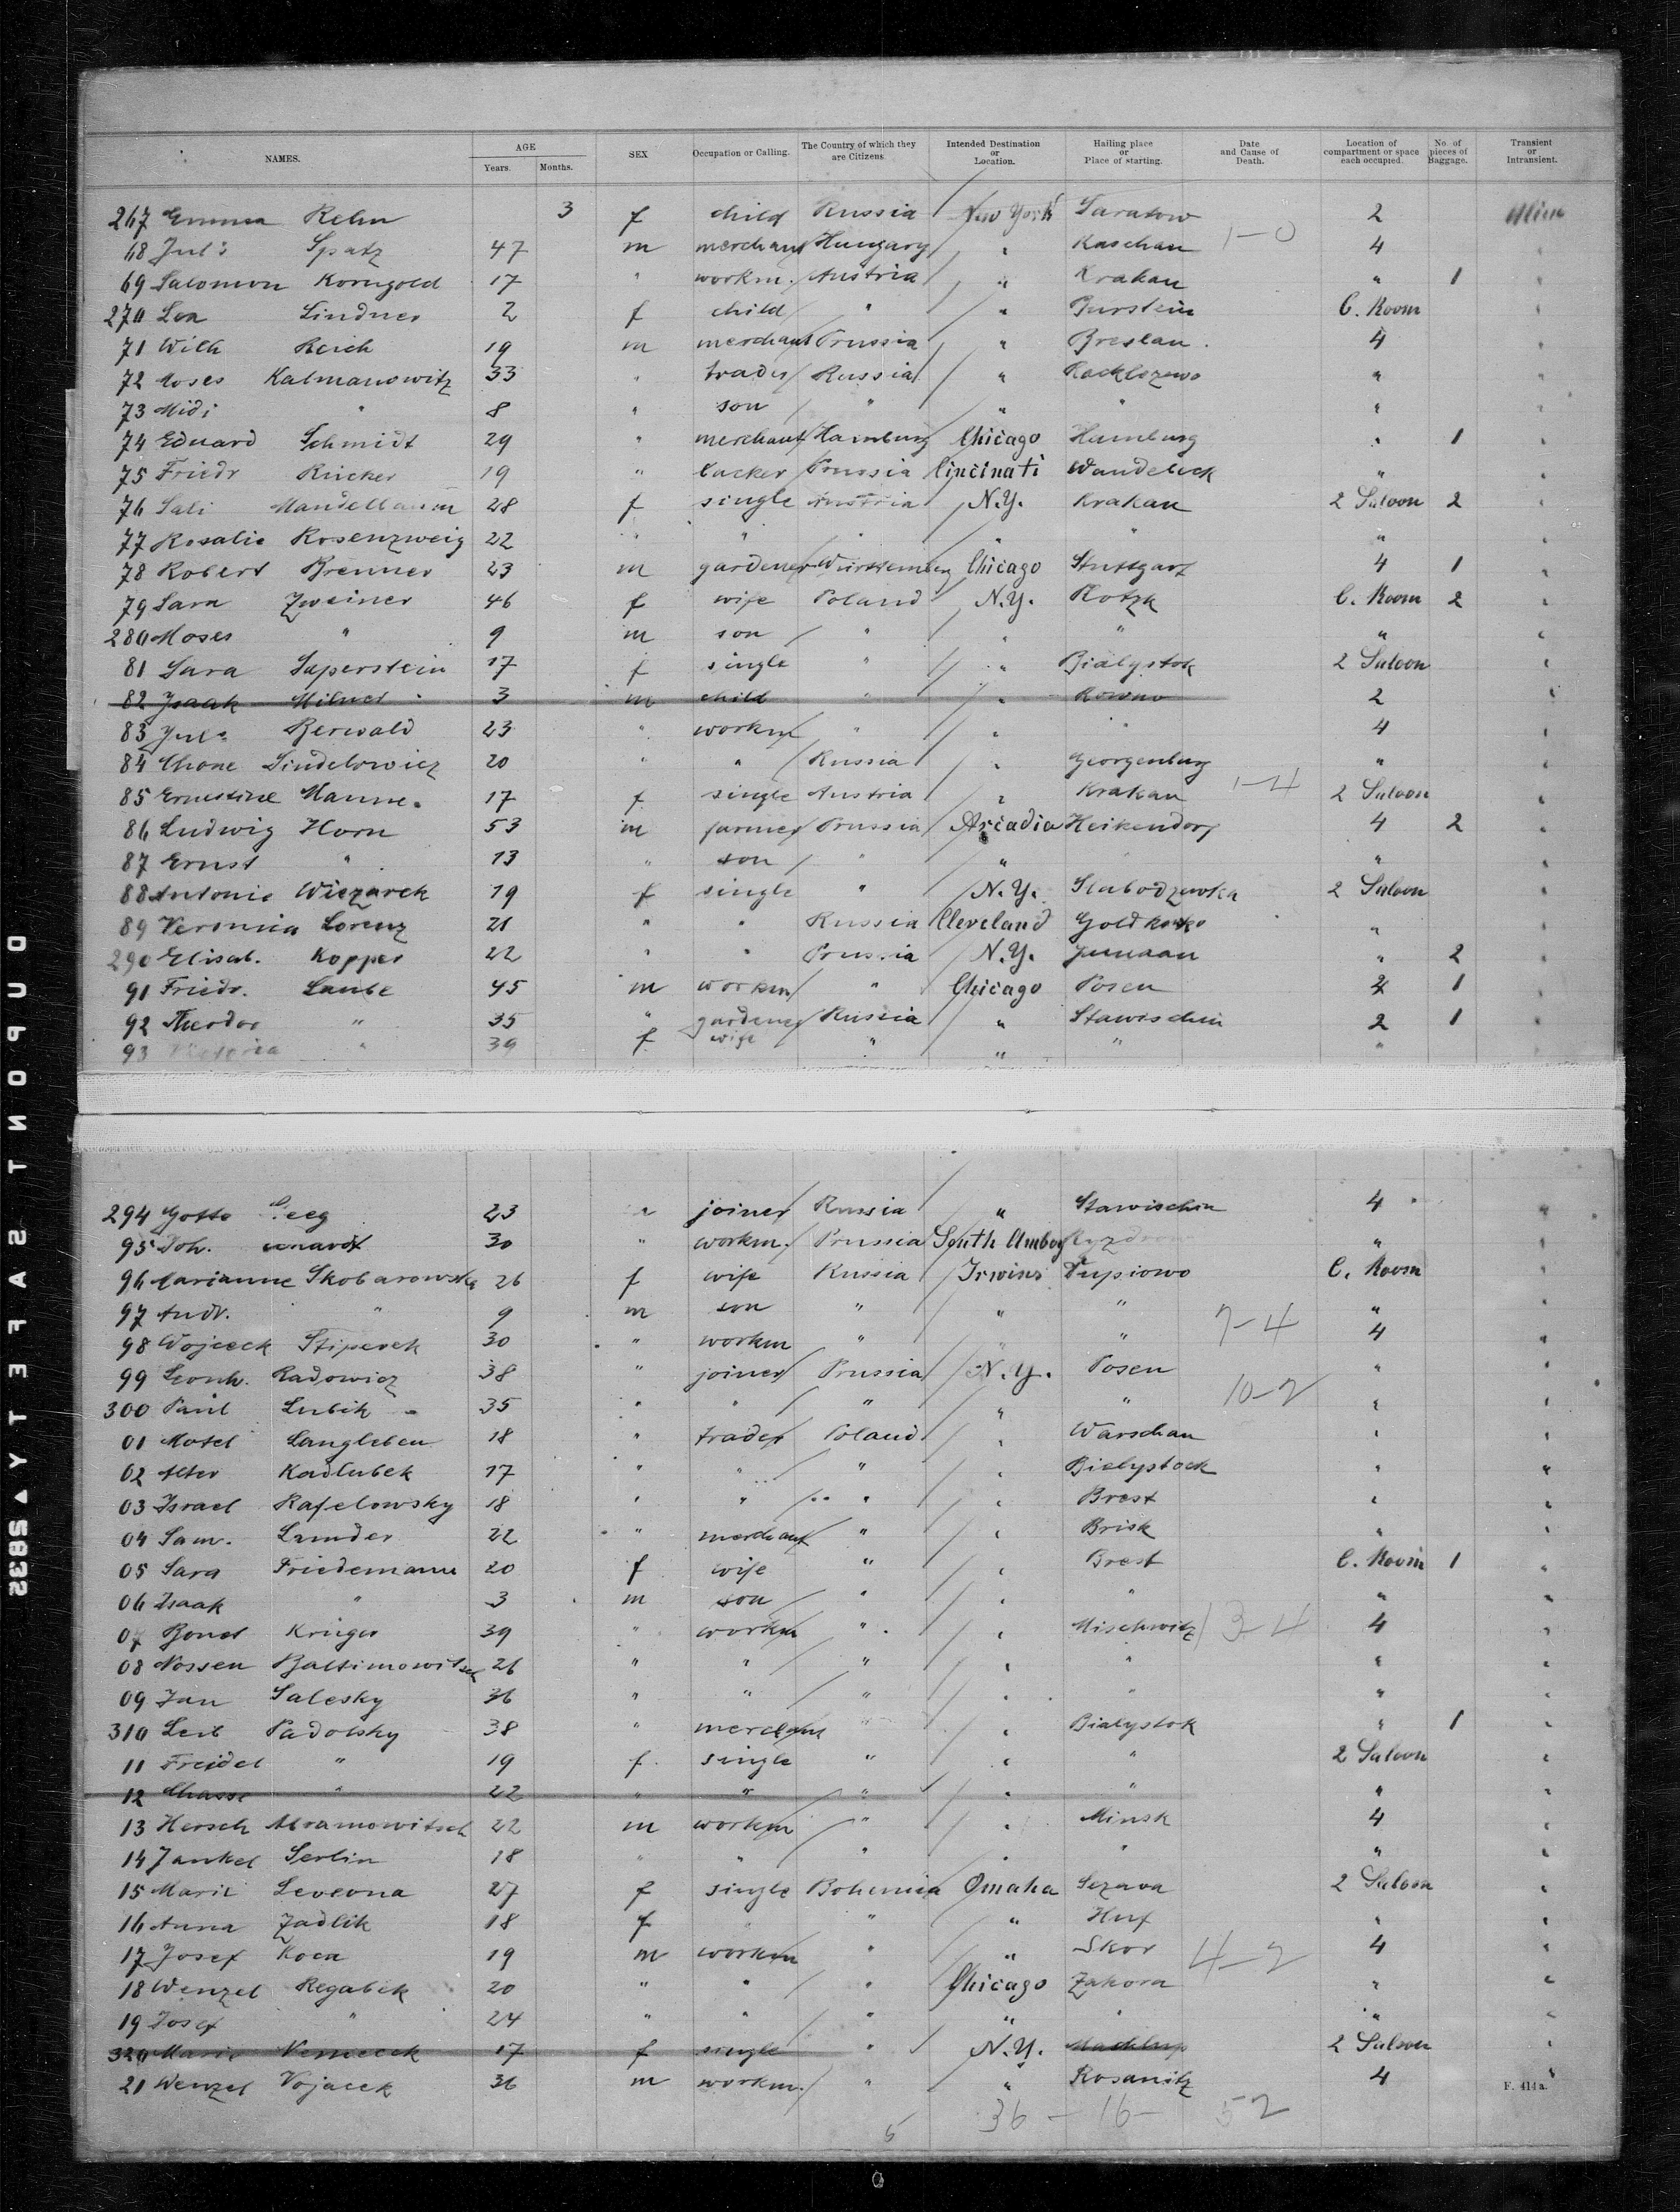 NAMES. AGE SEX Occupation or Calling. The Country of which they are Citizens. Intended Destination or Location. Hailing place or Place of starting. Date and Cause of Death. Location of compartment or space each occupied. No. of pieces of Baggage. Transient or Intransient.
Years. Months.
267 Emma Rehn 3 f child Russia New York Saratow 2
68 Jul's Spatz 47 m merchant Hungary " Kaschau 1-0 4 "
69 Salomon Korngold 17 " workm. Austria " Krakau " 1 "
270 Lea Lindner 2 f child " " Burstein C. Room "
71 Wilh Reich 19 m merchant Prussia " Breslau. 4 "
72 Moses Kalmanowitz 33 " trader Russia " " "
73 Midi " 8 " son " " " " "
74 Eduard Schmidt 29 " merchant Hamburg Chicago Hamburg " 1 "
75 Friedr Rücker 19 " Prussia Cincinati Wandsbeck " "
76 Sali Mandelbaum 28 f single Austria N.Y. Krakau 2 Saloon 2 "
77 Rosalie Rosenzweig 22 " " " " " " "
78 Robert Brenner 23 m gardener Württemberg Chicago Stuttgart 4 1 "
79 Sara Zweiner 46 f wife Poland N.Y. Kotzk C. Room 2 "
280 Moses " 9 m son " " " " "
81 Sara Saperstein 17 f single " " Bialystok 2 Saloon "
82 Isaak Milner 3 m child " " Kowno 2 "
83 Jul's Berwald 23 " workm " " " 4 "
84 Chone Lindelowicz 20 " " Russia " Georgenburg " "
85 Ernestine Manne. 17 f single Austria " Krakau 1-4 2 Saloon "
86 Ludwig Horn 53 m farmer Prussia Arcadia Heikendorf 4 2 "
87 Ernst " 13 " son " " " "
88 Antonie Wiezarek 19 f single " N.Y. Slabodzewka 2 Saloon "
89 Veronica Lorenz 21 " " Russia Cleveland " "
290 Elisab. Kopper 22 " " Prussia N.Y. " 2 "
91 Friedr. Laube 45 m workm " Chicago Posen 4 1 "
92 Theodor " 35 " gardener Russia " Stawischin 2 1 "
93 Victoria " 39 f wife " " " "
294 Gotto 23 " joiner Russia " Stawischin 4 "
95 Joh. 30 " workm. Prussia South Amboy " "
96 Marianne Skobarowska 26 f wife Russia Irwins Tupiowo C. Room "
97 Andr. " 9 m son " " " " "
98 Wojceck Stiperek 30 " workm " " " 7-4 4 "
99 Leonh. Radowicz 38 " joiner Prussia N.Y. Posen " "
300 Paul Lubik 35 " " " " " 10-2 " "
01 Motel Langleben 18 " trader Poland " Warschau " "
02 Alter Kadlubek 17 " " " " Bielystock " "
03 Israel Rafelowsky 18 " " " " Brest " "
04 Sam. Lamder 22 " merchant " " Brisk " "
05 Sara Friedemann 20 f wife " " Brest C. Room 1 "
06 Isaak " 3 m son " " " " "
07 Krüger 39 " workm " " Mischwitz 3-4 4 "
08 Nossen Baltimowitsch 26 " " " " " " "
09 Jan Salesky 36 " " " " " " "
310 Leib Padolsky 38 " merchant " " Bialystok " 1 "
11 Freidel " 19 f. single " " " 2 Saloon "
12 Chasse " 22 " " " " " " "
13 Hersch Abramowitsch 22 m workm " " Minsk 4 "
14 Jankel Serlin 18 " " " " " " "
15 Marie Leveona 27 f single Bohemia Omaha Sezava 2 Saloon "
16 Anna Zadlik 18 f " " " Huf " "
17 Josef Koca 19 m workm " " Skor 4-2 4 "
18 Wenzel Regabek 20 " " " Chicago Zahora " "
19 Josef " 24 " " " " " " "
320 Marie Nemecek 17 f single " N.Y. 2 Saloon "
21 Wenzel Vojacek 36 m workm. " " Rosanitz 4 "
F. 414 a.
5 36 - 16 - 52
DUPONT SAFETY ▲ S832